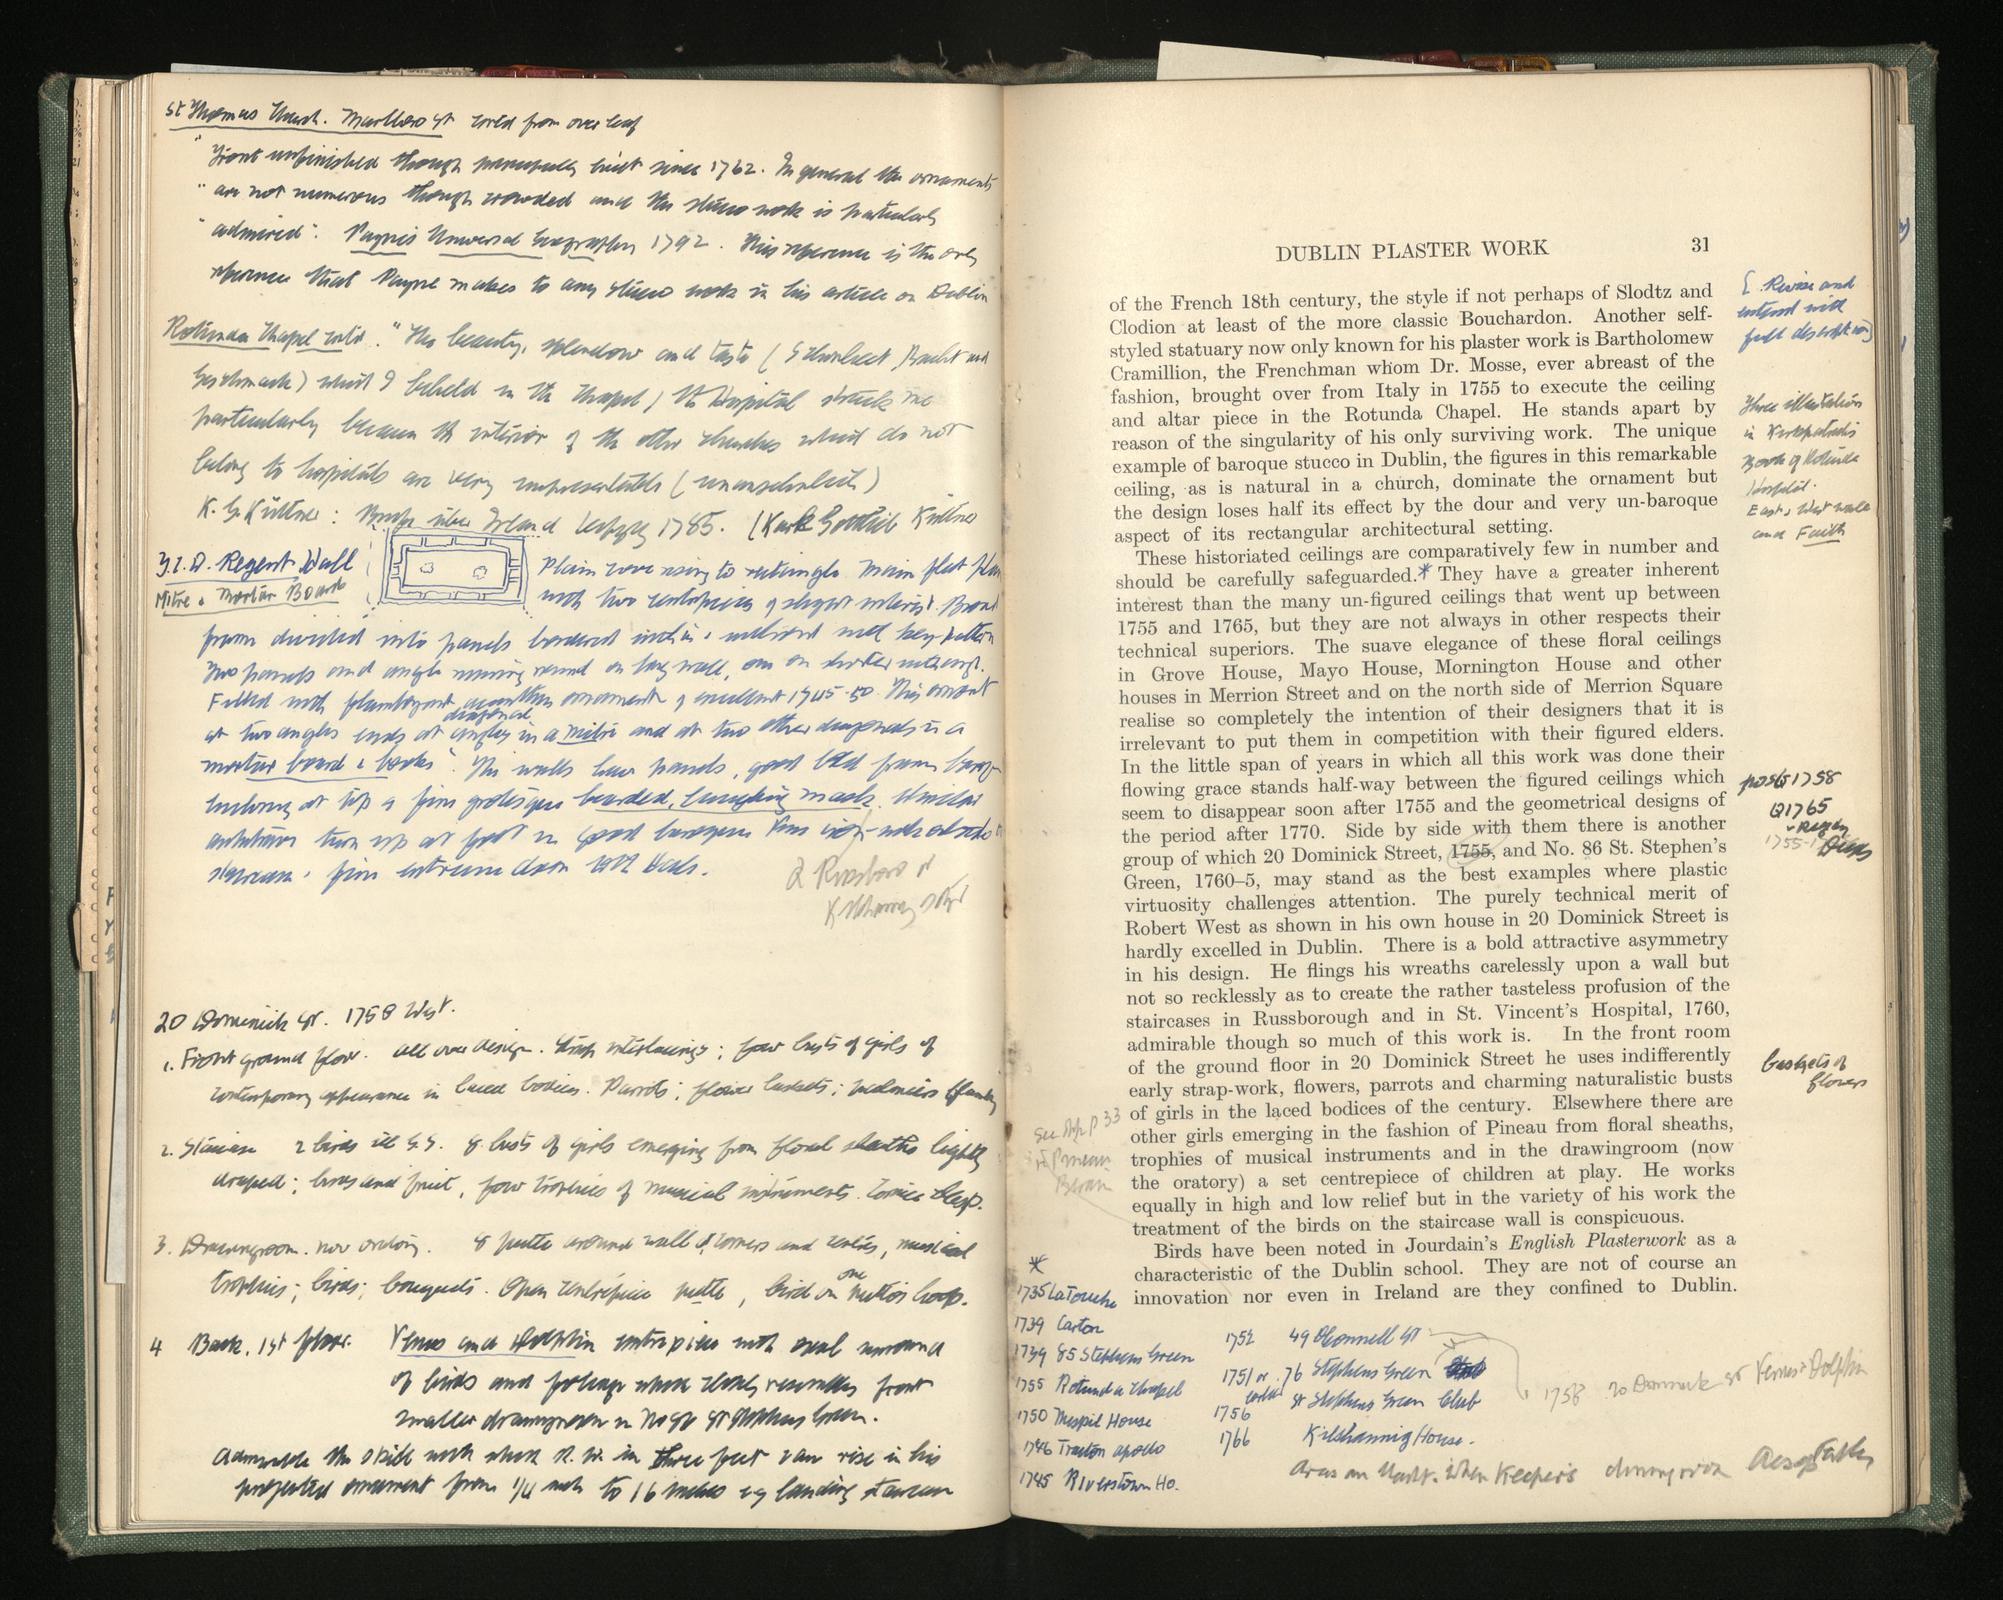 St Thomas Church. Marlboro St contd from over leaf
"Front unfinished though principally built since 1762. In general the ornaments
"are not numerous though crowded and the stucco work is particularly
"admired". Payne's Universal Geography 1792. This reference is the only
reference that Payne makes to any stucco work in his article on Dublin
Rotunda Chapel contd. "The beauty, splendour and taste (Schönheit, Pracht und
Geschmack) which I beheld in the Chapel of the Hospital struck me
particularly because the interior of the other churches which do not
belong to hospitals are very unpresentable (unansehnlich)
K. G. Küttner: Briefe über Irland Leipzig 1785. (Karl Gottlieb Küttner
Regent Hall
Mitre & Mortar Board
Plain cove rising to rectangle. Main flat plain
with two centrepieces of slight interest. Broad
frame divided into panels bordered with key pattern
Two panels and angle running round on long wall, one on shorter
Filled with flamboyant acanthus ornament of excellent 1745-50. This ornament
at two angles ends at diagonal angles in a mitre and at two other diagonals in a
mortar board & books". The walls have panels, good old frames
enclosing at top a fine grotesque bearded, laughing mask. Similar
turn up at foot in good
staircase. fine extreme door
? Russboro &
Kilshannig style
20 Dominick St. 1758 West.
1. Front ground floor. All over design. Strap interlacings; four busts of girls of
contemporary appearance in laced bodices. Parrots; flower baskets;
2. Staircase 2 birds ill G.S. 8 busts of girls emerging from floral sheaths lightly
draped; birds and fruit, four trophies of musical instruments. Cornice deep.
3. Drawingroom. now oratory. 8 putti around wall & corners and centres, musical
trophies; birds; bouquets. Open centrepiece putti, bird on one putto's hoop.
4 Back. 1st floor. Venus and Dolphin centrepiece with oval surround
of birds and foliage which closely resembles front
smaller drawingroom in No 86 St Stephens Green.
Admirable the skill with which R. W. in three feet can rise in his
projected ornament from 1/4 inch to 16 inches eg landing staircase
DUBLIN PLASTER WORK 31
of the French 18th century, the style if not perhaps of Slodtz and
Clodion at least of the more classic Bouchardon. Another self-
styled statuary now only known for his plaster work is Bartholomew
Cramillion, the Frenchman whom Dr. Mosse, ever abreast of the
fashion, brought over from Italy in 1755 to execute the ceiling
and altar piece in the Rotunda Chapel. He stands apart by
reason of the singularity of his only surviving work. The unique
example of baroque stucco in Dublin, the figures in this remarkable
ceiling, as is natural in a church, dominate the ornament but
the design loses half its effect by the dour and very un-baroque
aspect of its rectangular architectural setting.
These historiated ceilings are comparatively few in number and
should be carefully safeguarded.* They have a greater inherent
interest than the many un-figured ceilings that went up between
1755 and 1765, but they are not always in other respects their
technical superiors. The suave elegance of these floral ceilings
in Grove House, Mayo House, Mornington House and other
houses in Merrion Street and on the north side of Merrion Square
realise so completely the intention of their designers that it is
irrelevant to put them in competition with their figured elders.
In the little span of years in which all this work was done their
flowing grace stands half-way between the figured ceilings which
seem to disappear soon after 1755 and the geometrical designs of
the period after 1770. Side by side with them there is another
group of which 20 Dominick Street, 1755, and No. 86 St. Stephen's
Green, 1760–5, may stand as the best examples where plastic
virtuosity challenges attention. The purely technical merit of
Robert West as shown in his own house in 20 Dominick Street is
hardly excelled in Dublin. There is a bold attractive asymmetry
in his design. He flings his wreaths carelessly upon a wall but
not so recklessly as to create the rather tasteless profusion of the
staircases in Russborough and in St. Vincent's Hospital, 1760,
admirable though so much of this work is. In the front room
of the ground floor in 20 Dominick Street he uses indifferently
early strap-work, flowers, parrots and charming naturalistic busts
of girls in the laced bodices of the century. Elsewhere there are
other girls emerging in the fashion of Pineau from floral sheaths,
trophies of musical instruments and in the drawingroom (now
the oratory) a set centrepiece of children at play. He works
equally in high and low relief but in the variety of his work the
treatment of the birds on the staircase wall is conspicuous.
Birds have been noted in Jourdain's English Plasterwork as a
characteristic of the Dublin school. They are not of course an
innovation nor even in Ireland are they confined to Dublin.
[ Revise and
extend with
full description]
Three illustrations
in Kirkpatrick's
Book of Rotunda
Hospital.
East, West walls
and Faith
post 1758
Q1765
v Registry
Deeds
baskets of
flowers
See p 33
re Pineau
Berain
*
1735 La Touche
1739 Carton
1739 85 Stephens Green
1755 Rotunda Chapel
1750 Mespil House
1746 Tracton Apollo
1745 Riverstown Ho.
1752 49 O'Connell St
1751 or earlier 76 Stephens Green
1756 St Stephens Green Club
1766 Kilshannig House.
1758 20 Dominick St Venus & Dolphin
Aras an Uacht. When Keeper's diningroom Aesop Fables